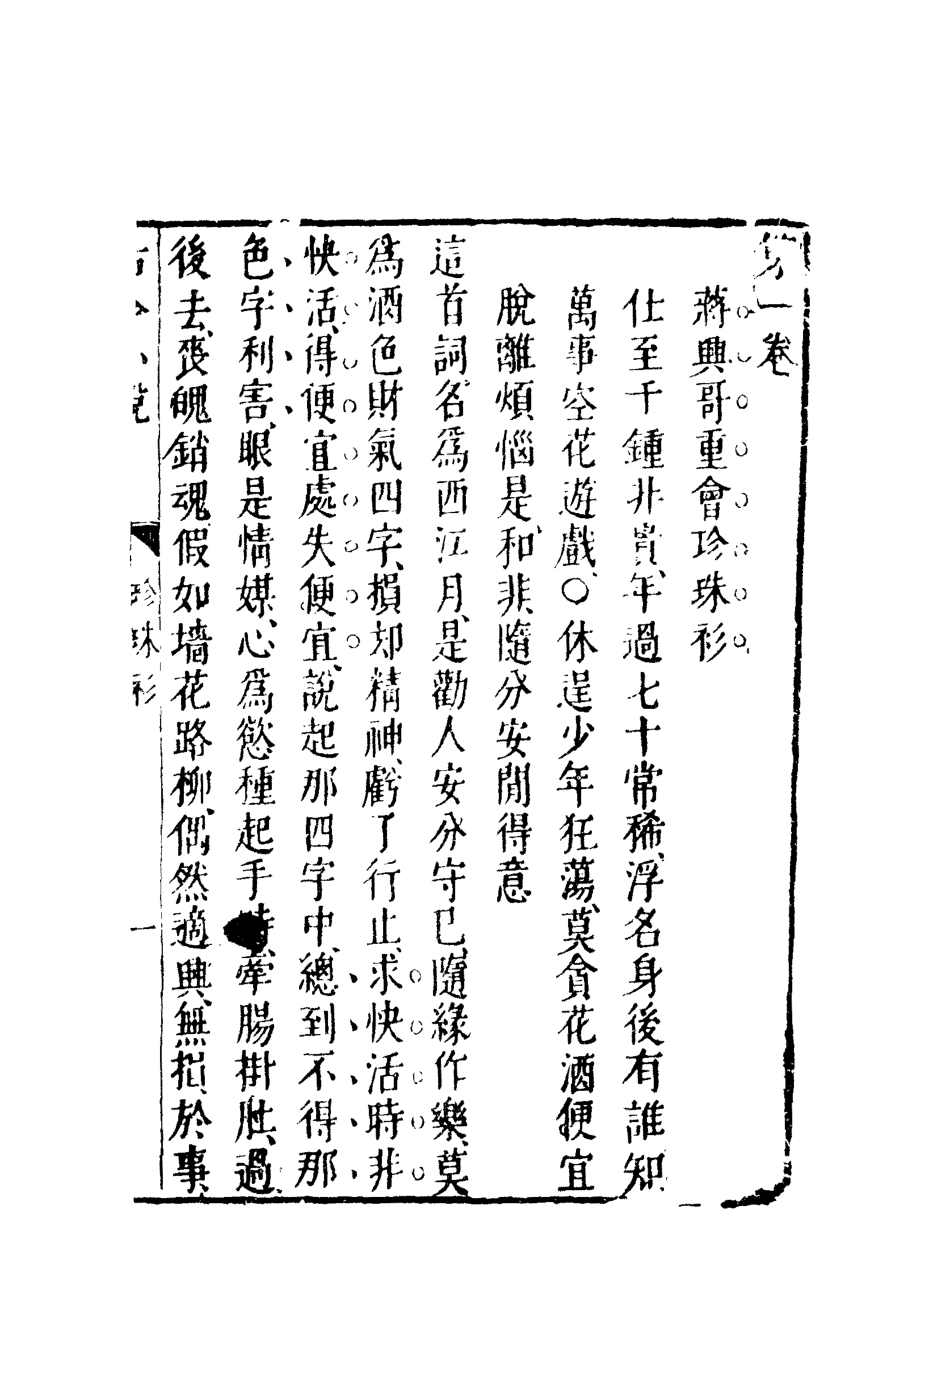 第一卷
蔣興哥重會珍珠衫
仕至千鍾非貴、年過七十常稀、浮名身後有誰知、
萬事空花遊戲、○休逞少年狂蕩、莫貪花酒便宜
脫離煩惱是和非、隨分安閒得意
這首詞名爲西江月、是勸人安分守己、隨緣作樂、莫
爲酒色財氣四字、損却精神、虧了行止、求快活時非
快活、得便宜處失便宜、說起那四字中、總到不得那
色字利害、眼是情媒、心爲慾種、起手時、牽腸掛肚、過
後去、喪魄銷魂、假如墻花路柳、偶然適興、無損於事、
古今小說 珍珠衫 一